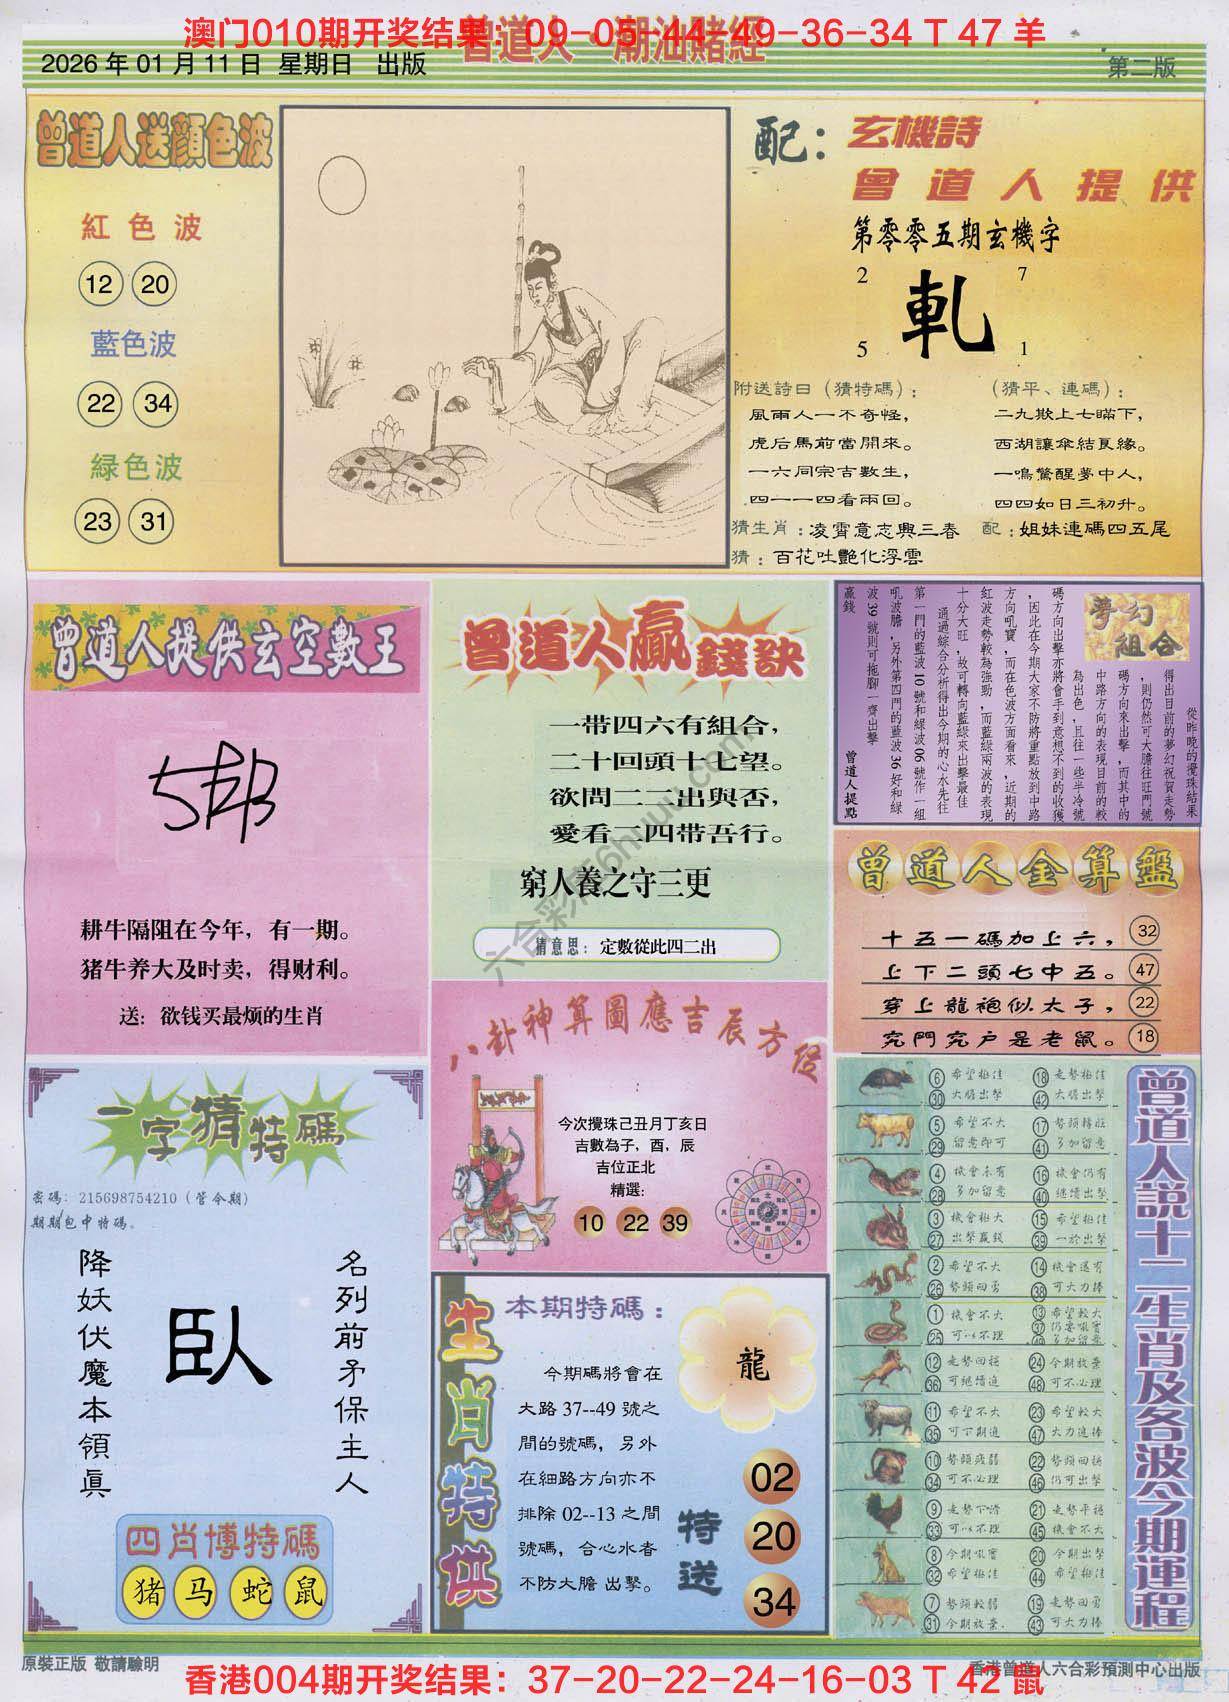 澳门010期开奖结果：09-05-44-49-36-34 T 47 羊
曾道人 潮汕賭經
2026 年 01 月 11 日 星期日 出版
第二版
曾道人送顏色波
紅色波
12 20
藍色波
22 34
緑色波
23 31
配：玄機詩
曾道人提供
第零零五期玄機字
2 7
軋
5 1
附送詩曰（猜特碼）：
風雨人一不奇怪，
虎后馬前當開來。
一六同宗吉數生，
四一一四看兩回。
（猜平、連碼）：
二九欺上七瞞下，
西湖讓傘結良緣。
一鳴驚醒夢中人，
四四如日三初升。
猜生肖：凌霄意志興三春
配：姐妹連碼四五尾
猜：百花吐艷化浮雲
曾道人提供玄空數王
耕牛隔阻在今年，有一期。
猪牛养大及时卖，得财利。
送：欲钱买最烦的生肖
曾道人贏錢訣
一带四六有組合，
二十回頭十七望。
欲問二二出與否，
愛看一四带吾行。
窮人養之守三更
猜意思：定數從此四二出
夢幻組合
從昨晚的攪珠結果
得出目前的夢幻祝賀走勢
，則仍然可大膽往旺門號
碼方向來出擊，而其中的
中路方向的表現目前的較
為出色，且往一些半冷號
碼方向出擊亦將會手到意想不到的收獲
，因此在今期大家不防將重點放到中路
方向吼寶，而在色波方面看來，近期的
紅波走勢較為強勁，而藍綠兩波的表現
十分大旺，故可轉向藍綠來出擊最佳
通過綜合分析得出今期的心水先往
第一門的藍波10號和綠波06號作一組
吼波膽，另外第四門的藍波36好和綠
波39號則可拖腳一齊出擊
贏錢
曾道人提點
曾道人金算盤
十五一碼加上六， 32
上下二頭七中五。 47
穿上龍袍似太子， 22
穴門穴户是老鼠。 18
八卦神算圖應吉辰方位
今次攪珠己丑月丁亥日
吉數為子，酉，辰
吉位正北
精選：
10 22 39
一字猜特碼
密碼：215698754210（管今期）
期期包中特碼。
降妖伏魔本領眞
臥
名列前矛保主人
四肖博特碼
猪 马 蛇 鼠
生肖特供
本期特碼：
龍
今期碼將會在
大路 37--49 號之
間的號碼，另外
在細路方向亦不
排除 02--13 之間
號碼，合心水者
不防大膽 出擊。
特送
02
20
34
曾道人説十二生肖及各波今期運程
6 希望極佳 18 走勢極佳
30 大膽出擊 42 大膽出擊
5 希望不大 17 勢頭轉旺
29 留意即可 41 多加留意
4 機會未有 16 機會仍有
28 多加留意 40 继續出擊
3 機會極大 15 希望極佳
27 出擊贏錢 39 一於出擊
2 希望不大 14 機會還有
26 勢頭回勇 38 可大力捧
1 機會不大 13 希望較大
37 仍要吼實
25 可以不理 49 多加留意
12 走勢回穩 24 今期放棄
36 可继續追 48 可不必理
11 希望不大 23 希望較大
35 可下期追 47 大力追捧
10 勢頭疲弱 22 勢頭回穩
34 可不必理 46 仍可出擊
9 走勢下滑 21 走勢平穩
33 可以不理 45 機會不大
8 今期吼實 20 今期出擊
32 希望極佳 44 希望極佳
7 勢頭較弱 19 走勢回勇
31 今期放棄. 43 可大力捧
六合彩库6huuu.com
原裝正版 敬請驗明
香港曾道人六合彩預測中心出版
香港004期开奖结果：37-20-22-24-16-03 T 42 鼠